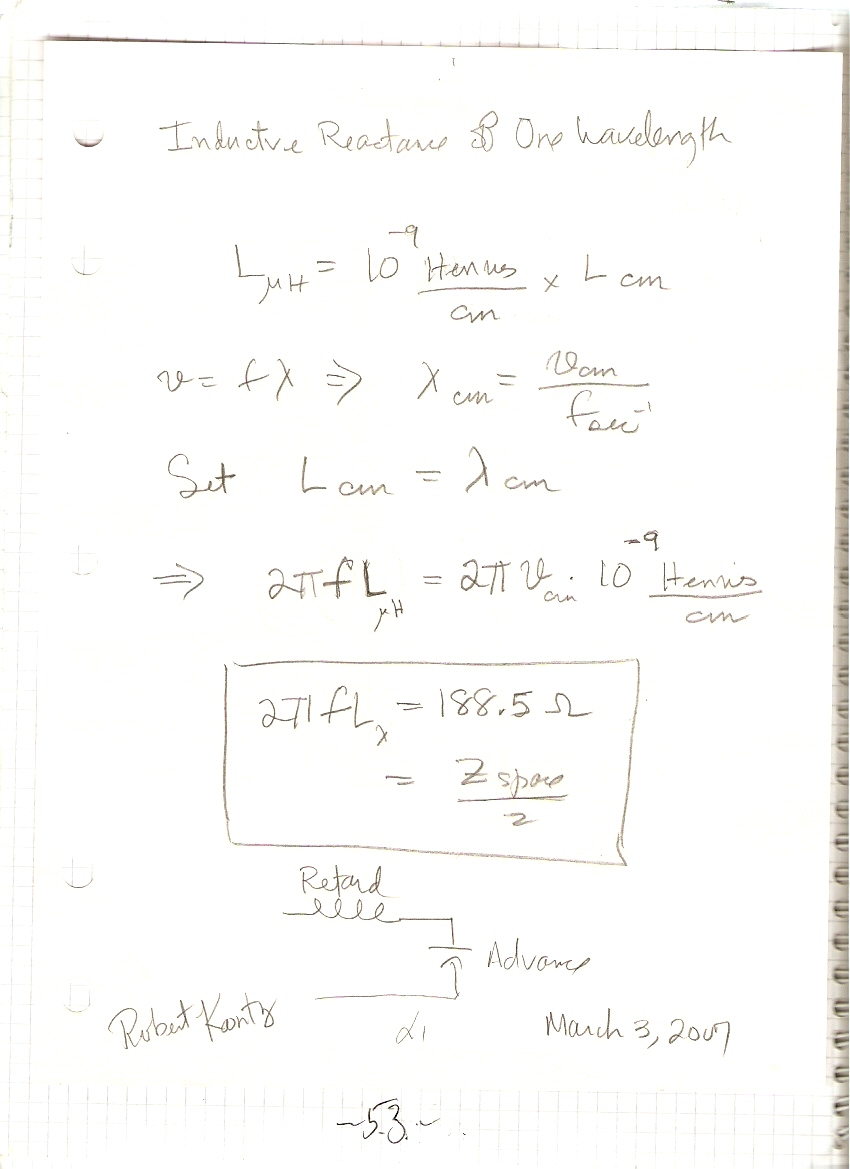 Inductive Reactance of One Wavelength
L μH = 10^-9 Henries/cm × L cm
v = fλ ⇒ λ cm = v cm / f sec^-1
Set L cm = λ cm
⇒ 2πf L μH = 2π v cm · 10^-9 Henries/cm
2πf L λ = 188.5 Ω
= Z space / 2
Retard
Advance
Robert Koontz
α1
March 3, 2007
-53-